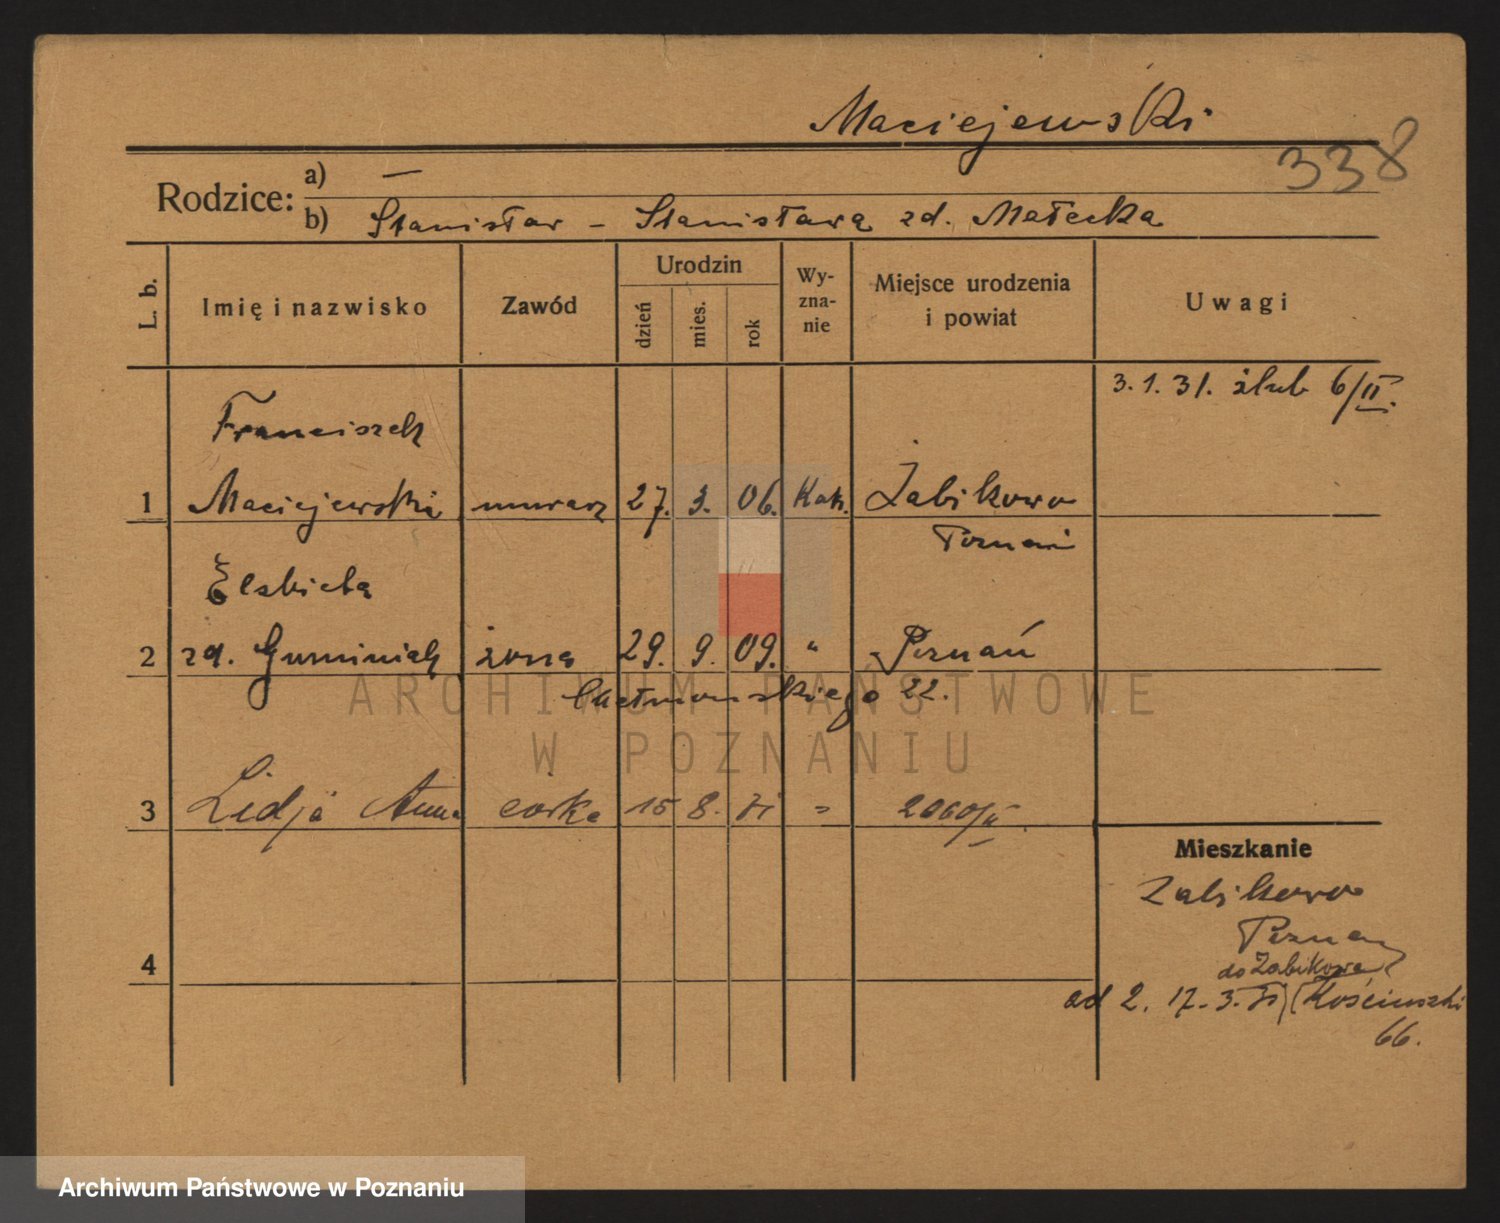 Maciejewski
338
Rodzice: a) —
b) Stanisław – Stanisława zd. Małecka
L. b. Imię i nazwisko Zawód Urodzin dzień mies. rok Wy-zna-nie Miejsce urodzenia i powiat Uwagi
3.1.31. ślub 6/II.
Franciszek
1 Maciejewski murarz 27. 3. 06. Kat. Żabikowo
Poznań
Elżbieta
2 zd. Guminiak żona 29. 9. 09. " Poznań
Chełmońskiego 22.
ARCHIWUM PAŃSTWOWE
W POZNANIU
3 Lidja Anna córka 15 8. 31 " 2060/II
Mieszkanie
Żabikowo
Poznań
4
do Żabikowa
ad 2. 17.3.31 (Kościuszki
66.
Archiwum Państwowe w Poznaniu